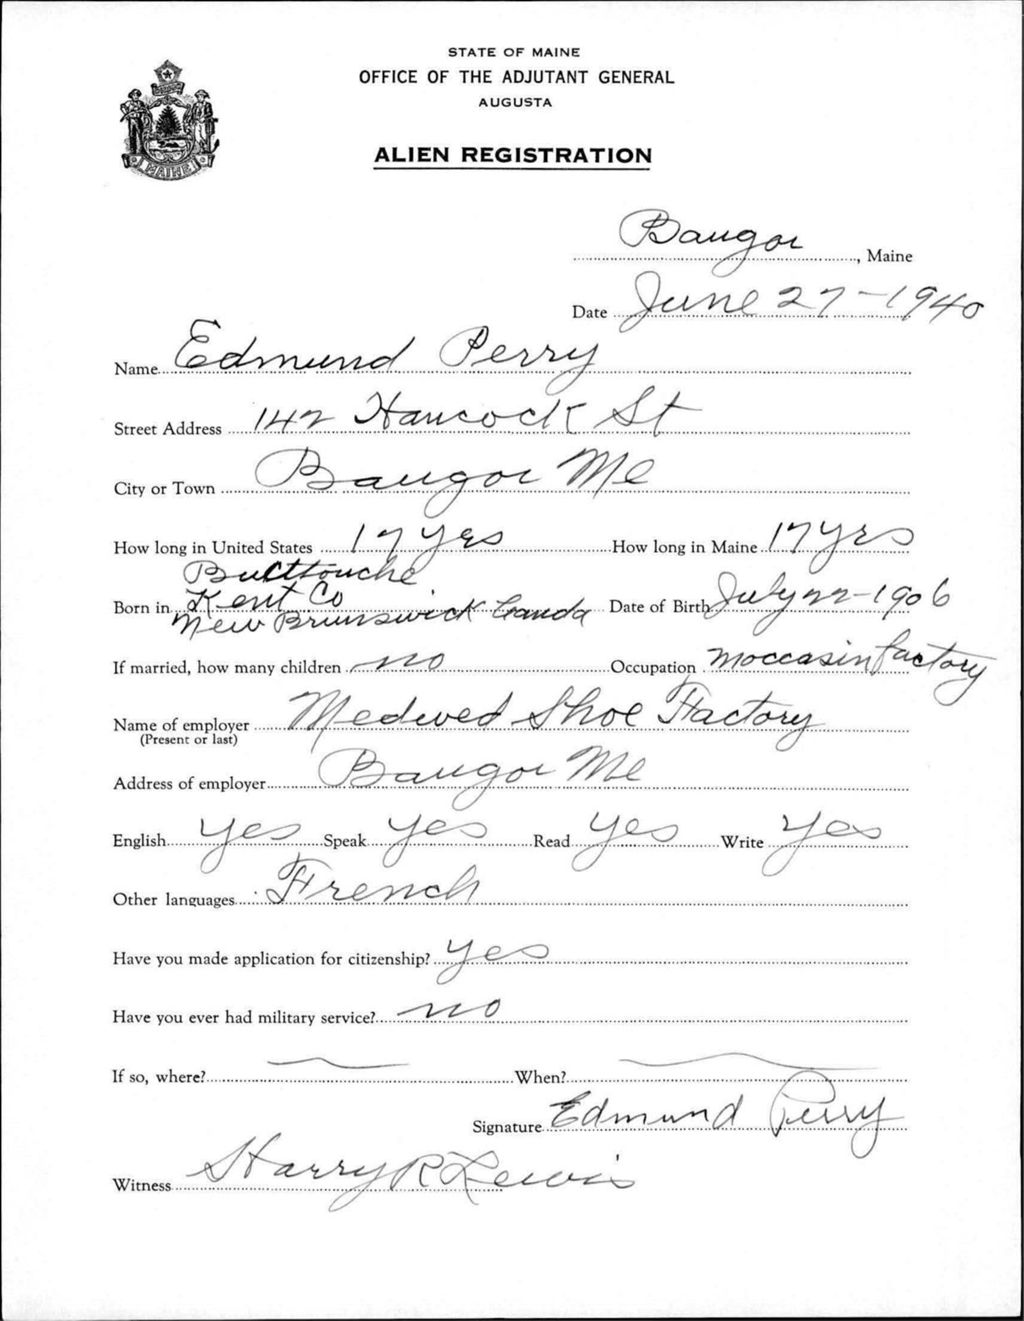 STATE OF MAINE
OFFICE OF THE ADJUTANT GENERAL
AUGUSTA
ALIEN REGISTRATION
MAINE
Bangor, Maine
Date June 27-1940
Name Edmund Perry
Street Address 142 Hancock St
City or Town Bangor Me
How long in United States 17 yrs How long in Maine 17 yrs
Bucttouche
Born in Kent Co Date of Birth July 22-1906
New Brunswick Canda
If married, how many children no Occupation moccasin factory
Name of employer Medwed Shoe Factory
(Present or last)
Address of employer Bangor Me
English yes Speak yes Read yes Write yes
Other languages French
Have you made application for citizenship? yes
Have you ever had military service? no
If so, where? When?
Signature Edmund Perry
Witness Harry R Lewis